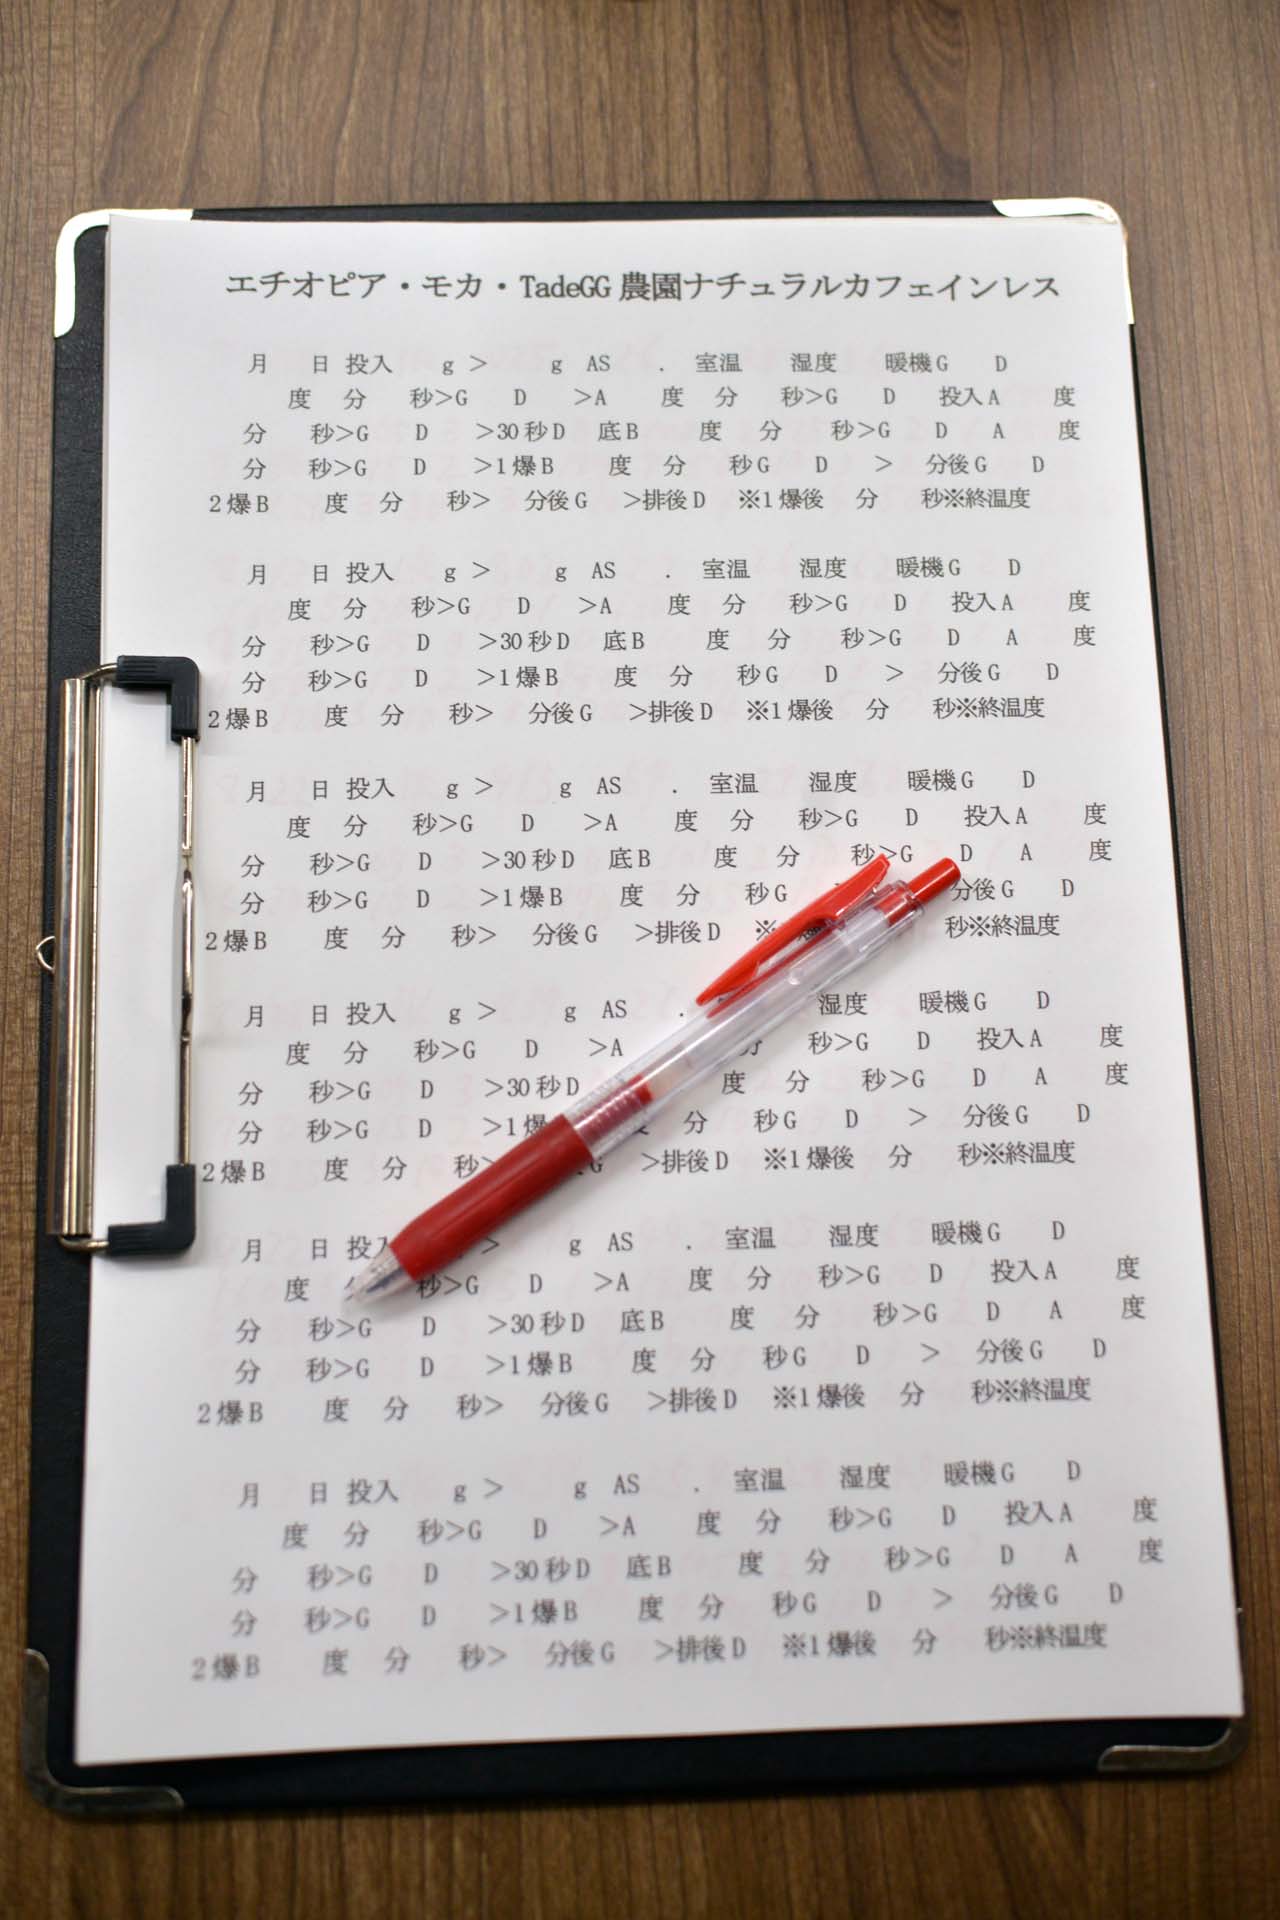 エチオピア・モカ・TadeGG農園ナチュラルカフェインレス
月 日 投入 g > g AS . 室温 湿度 暖機G D
度 分 秒>G D >A 度 分 秒>G D 投入A 度
分 秒>G D >30秒D 底B 度 分 秒>G D A 度
分 秒>G D >1爆B 度 分 秒G D > 分後G D
2爆B 度 分 秒> 分後G >排後D ※1爆後 分 秒※終温度
月 日 投入 g > g AS . 室温 湿度 暖機G D
度 分 秒>G D >A 度 分 秒>G D 投入A 度
分 秒>G D >30秒D 底B 度 分 秒>G D A 度
分 秒>G D >1爆B 度 分 秒G D > 分後G D
2爆B 度 分 秒> 分後G >排後D ※1爆後 分 秒※終温度
月 日 投入 g > g AS . 室温 湿度 暖機G D
度 分 秒>G D >A 度 分 秒>G D 投入A 度
分 秒>G D >30秒D 底B 度 分 秒>G D A 度
分 秒>G D >1爆B 度 分 秒G 分後G D
2爆B 度 分 秒> 分後G >排後D ※ 秒※終温度
月 日 投入 g > g AS . 湿度 暖機G D
度 分 秒>G D >A 分 秒>G D 投入A 度
分 秒>G D >30秒D 度 分 秒>G D A 度
分 秒>G D >1爆 度 分 秒G D > 分後G D
2爆B 度 分 秒> G >排後D ※1爆後 分 秒※終温度
月 日 投入 > g AS . 室温 湿度 暖機G D
度 分 秒>G D >A 度 分 秒>G D 投入A 度
分 秒>G D >30秒D 底B 度 分 秒>G D A 度
分 秒>G D >1爆B 度 分 秒G D > 分後G D
2爆B 度 分 秒> 分後G >排後D ※1爆後 分 秒※終温度
月 日 投入 g > g AS . 室温 湿度 暖機G D
度 分 秒>G D >A 度 分 秒>G D 投入A 度
分 秒>G D >30秒D 底B 度 分 秒>G D A 度
分 秒>G D >1爆B 度 分 秒G D > 分後G D
2爆B 度 分 秒> 分後G >排後D ※1爆後 分 秒※終温度